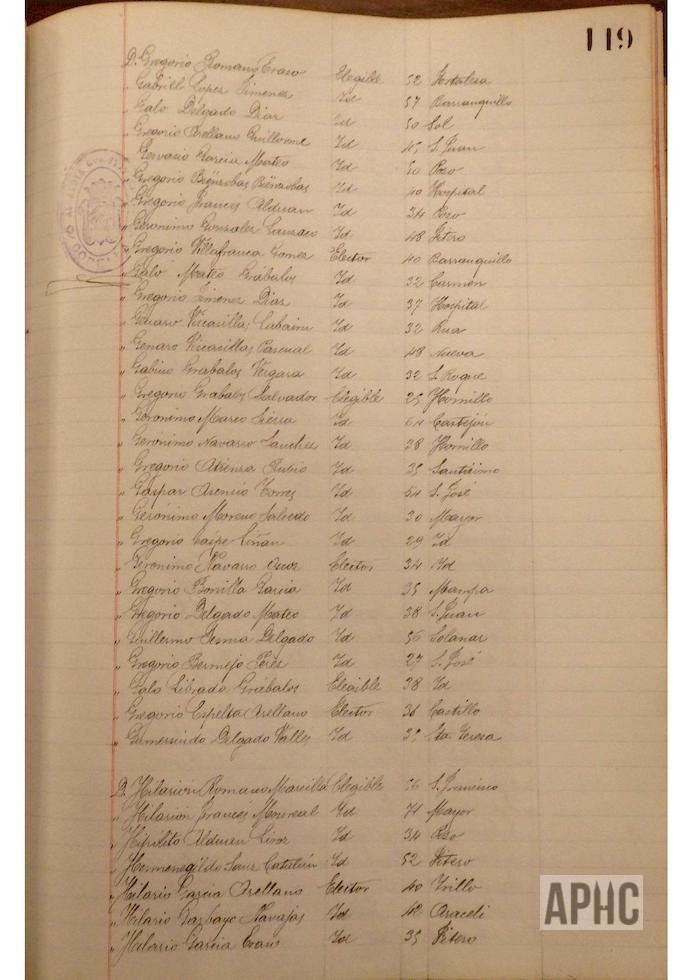 119
D. Gregorio Romano Eraso Elegible 52 Hortaleza
" Gabriel Lopez Jimenez Id 57 Barranquillo
" Galo Delgado Diaz Id 50 Sol
" Gregorio Arellano Guillorme Id 45 S. Juan
" Gervasio Garcia Mateo Id 50 Pozo
" Gregorio Id 40 Hospital
" Gregorio Frances Alduan Id 34 Pozo
" Geronimo Gonzalez Id 48 Fitero
" Gregorio Villafranca Gomez Elector 40 Barranquillo
" Galo Mateo Grabalos Id 32 Carmen
" Gregorio Jimenez Diaz Id 37 Hospital
" Genaro Vicasillas Id 32 Rua
" Genaro Vicasillas Pascual Id 48 Nueva
" Gabino Grabalos Vergara Id 32 S. Roque
" Gregorio Grabalos Salvador Elegible 25 Hornillo
" Geronimo Marco Sierra Id 64 Castejón
" Gerónimo Navarro Sanchez Id 38 Hornillo
" Gregorio Atienza Rubio Id 35 Santísimo
" Gaspar Asensio Torres Id 54 S. José
" Gerónimo Moreno Salcedo Id 30 Mayor
" Gregorio Liñan Id 29 Id
" Geronimo Navarro Elector 34 Id
" Gregorio Bonilla Garcia Id 35
" Gregorio Delgado Mateo Id 38 S. Juan
" Guillermo Delgado Id 56 Solanar
" Gregorio Bermejo Perez Id 27 S. José
" Galo Librado Grabalos Elegible 38 Id
" Gregorio Espelta Arellano Elector 36 Castillo
" Gumersindo Delgado Valles Id 35 Sta. Teresa
D. Hilarión Romano Marcilla Elegible 56 S. Francisco
" Hilarión Francés Monreal Id 71 Mayor
" Hipólito Alduan Id 34 Pozo
" Hermenegildo Sanz Catalán Id 52 Fitero
" Hilario Garcia Arellano Elector 40 Trillo
" Hilario Garbayo Navajas Id 42 Araceli
" Hilario Garcia Id 35 Fitero
APHC